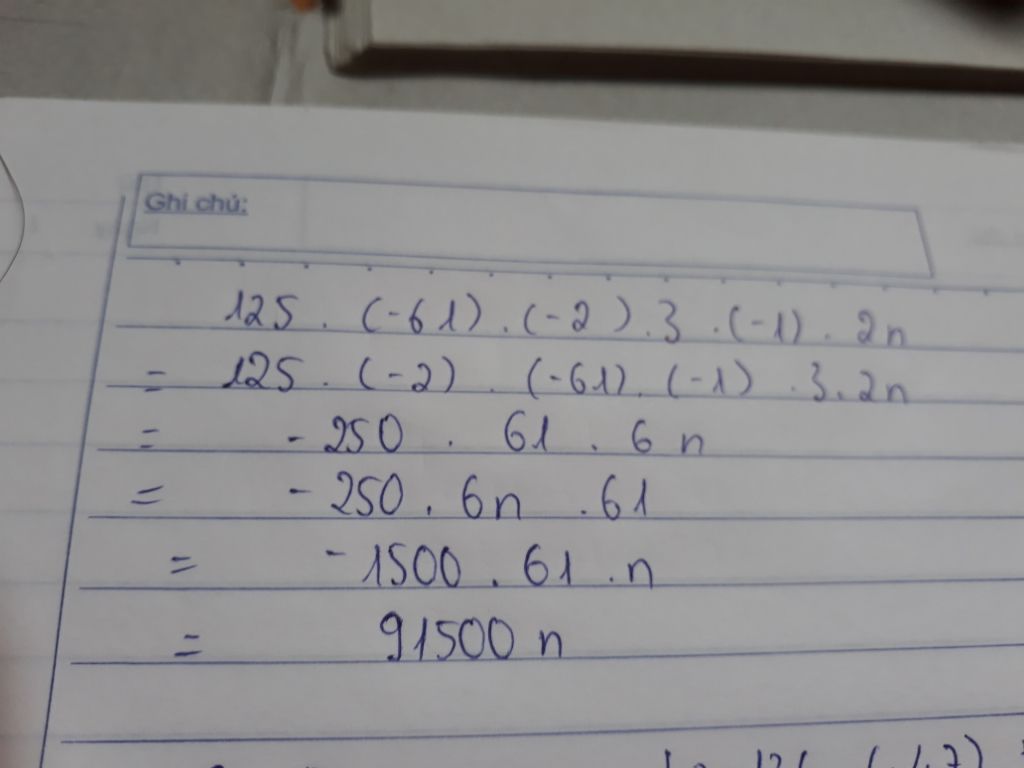 Ghi chú:
125 . (-61) . (-2) . 3 . (-1) . 2n
= 125 . (-2) . (-61) . (-1) . 3 . 2n
= - 250 . 61 . 6 n
= - 250 . 6n . 61
= - 1500 . 61 . n
= 91500 n